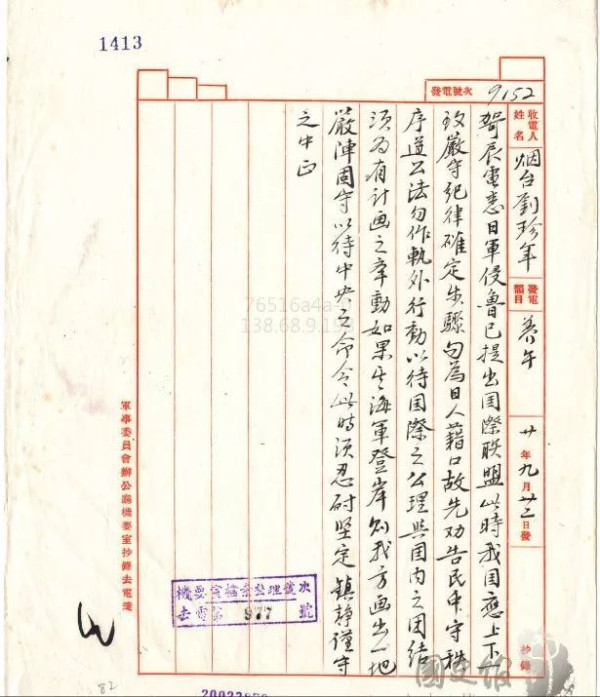 1413
發電號次 9152
收電人姓名 烟台劉珍年 發電韻目 養午 廿年九月廿二日發 抄錄
哿辰電悉日軍侵魯已提出国際联盟此時我国應上下一
致嚴守紀律確定步驟勿為日人藉口故先劝告民众守秩
序遵公法勿作軌外行動以待国際之公理與国内之团结
須為有計画之举動如果生海軍登岸则我方画出一地
嚴陣固守以待中央之命令此時須忍耐坚定鎮静謹守
之中正
軍事委員會辦公廳機要室抄錄去電箋
機要室檔案整理號次
去電第 977 號
82
76516a4a-0
138.68.9.193